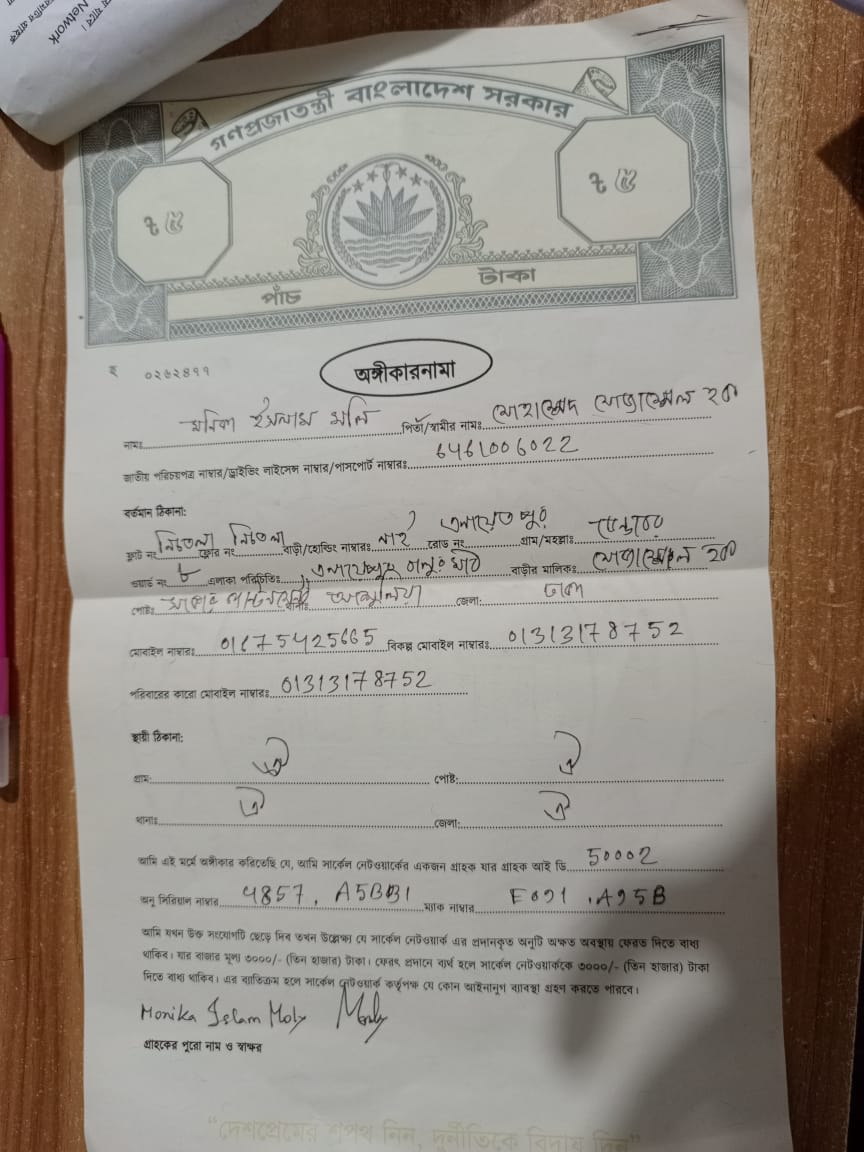 Network
গণপ্রজাতন্ত্রী বাংলাদেশ সরকার
৳ ৫ ৳ ৫
পাঁচ টাকা
অঙ্গীকারনামা
০২৬২৪৭৭
নামঃ মনিকা ইসলাম মলি পিতা/স্বামীর নামঃ মোহাম্মেদ মোজাম্মেল হক
জাতীয় পরিচয়পত্র নাম্বার/ড্রাইভিং লাইসেন্স নাম্বার/পাসপোর্ট নাম্বারঃ 6461006022
বর্তমান ঠিকানা:
ফ্লাট নং নিচতলা ফ্লোর নং নিচতলা বাড়ী/হোল্ডিং নাম্বারঃ নাই রোড নং গ্রাম/মহল্লাঃ
ওয়ার্ড নং ৮ এলাকা পরিচিতিঃ বাড়ীর মালিকঃ মোজাম্মেল হক
পোষ্টঃ থানাঃ আশুলিয়া জেলা: ঢাকা
মোবাইল নাম্বারঃ 01675425665 বিকল্প মোবাইল নাম্বারঃ 01313178752
পরিবারের কারো মোবাইল নাম্বারঃ 01313178752
স্থায়ী ঠিকানা:
গ্রাম: ঐ পোষ্ট: ঐ
থানাঃ ঐ জেলা: ঐ
আমি এই মর্মে অঙ্গীকার করিতেছি যে, আমি সার্কেল নেটওয়ার্কের একজন গ্রাহক যার গ্রাহক আই ডি 50002
অনু সিরিয়াল নাম্বার 4857, A5BB1 ম্যাক নাম্বার E091 .A95B
আমি যখন উক্ত সংযোগটি ছেড়ে দিব তখন উল্লেক্ষ্য যে সার্কেল নেটওয়ার্ক এর প্রদানকৃত অনুটি অক্ষত অবস্থায় ফেরত দিতে বাধ্য
থাকিব। যার বাজার মূল্য ৩০০০/- (তিন হাজার) টাকা। ফেরৎ প্রদানে ব্যর্থ হলে সার্কেল নেটওয়ার্ককে ৩০০০/- (তিন হাজার) টাকা
দিতে বাধ্য থাকিব। এর ব্যতিক্রম হলে সার্কেল নেটওয়ার্ক কর্তৃপক্ষ যে কোন আইনানুগ ব্যাবস্থা গ্রহণ করতে পারবে।
Monika Islam Moly Moly
গ্রাহকের পুরো নাম ও স্বাক্ষর
“দেশপ্রেমের শপথ নিন, দুর্নীতিকে বিদায় দিন”